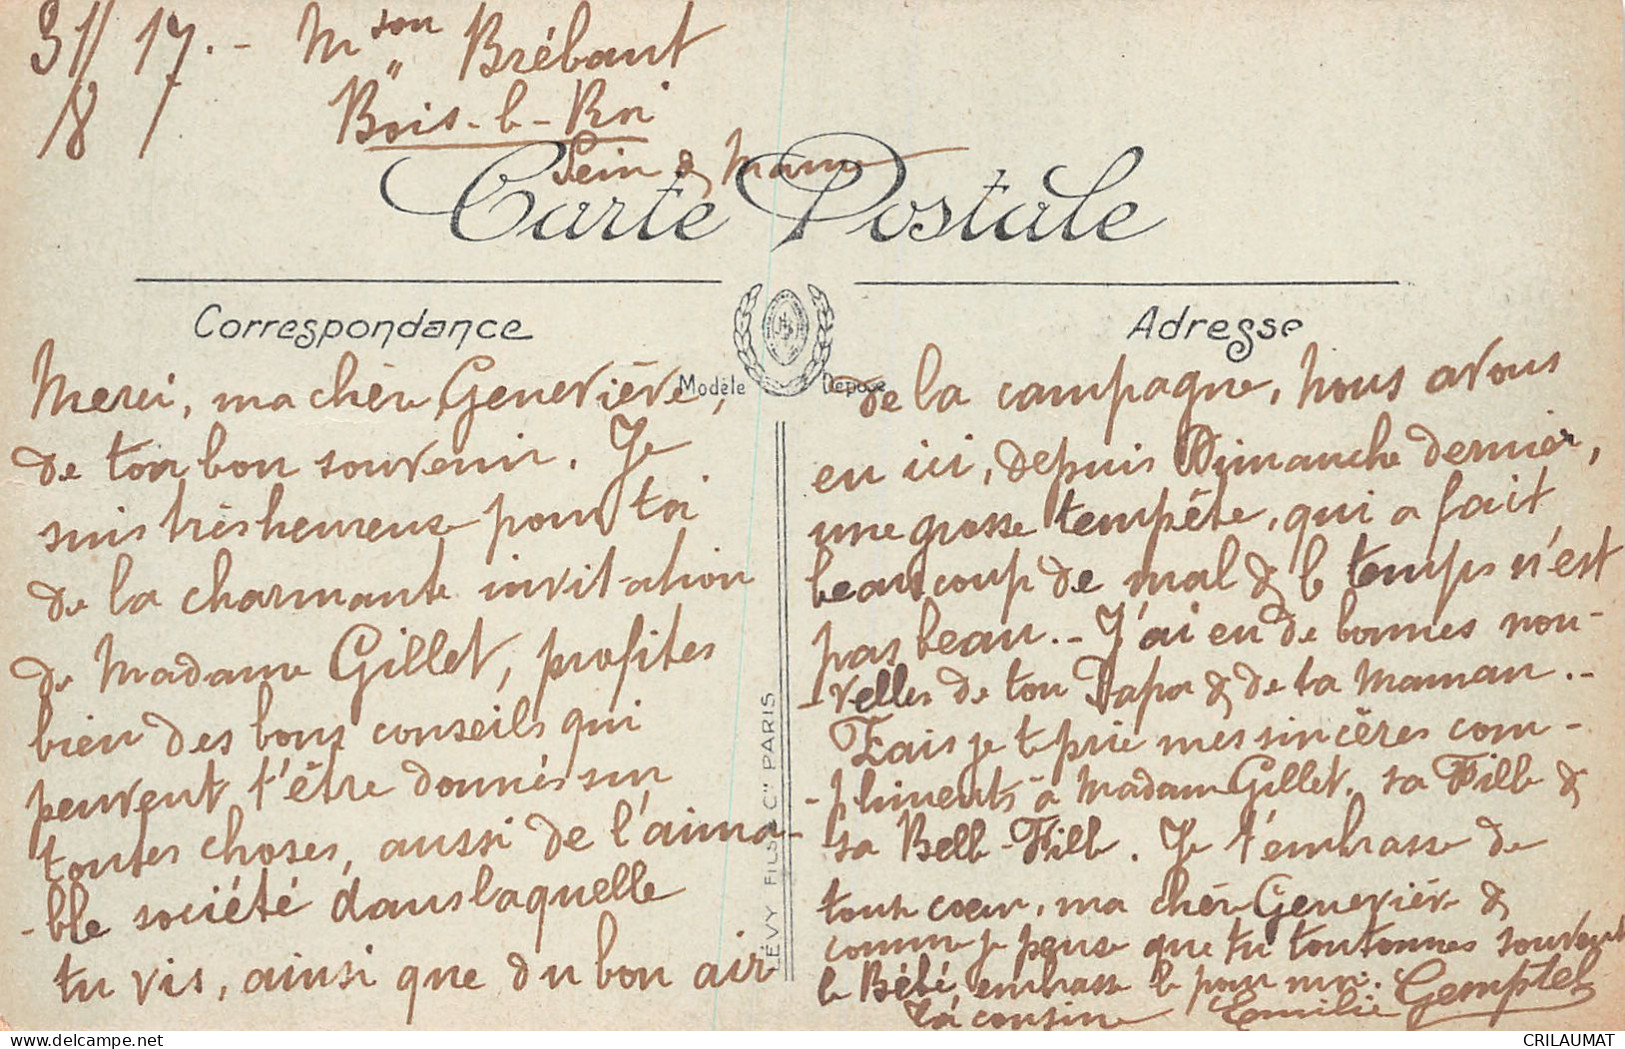 31/ 17.- Mson Brébant
8 / " Bois-le-Roi
Sein & Marne
Carte Postale
Correspondance
Adresse
Modèle Déposé
LÉVY FILS & Cie PARIS
Merci, ma chère Geneviève,
de ton bon souvenir. Je
suis très heureuse pour toi
de la charmante invitation
de Madame Gillet, profites
bien des bons conseils qui
peuvent t'être donnés sur
toutes choses, aussi de l'aima-
-ble société dans laquelle
tu vis, ainsi que du bon air
de la campagne, nous avous
eu ici, depuis Dimanche dernier,
une grosse tempête, qui a fait
beaucoup de mal & le temps n'est
pas beau.- J'ai eu de bonnes nou-
-velles de ton Papa & de ta Maman.-
Fais je te prie mes sincères com-
-pliments à Madame Gillet, sa Fille &
sa Belle-Fille. Je t'embrasse de
tout cœur, ma chère Geneviève &
comme je pense que tu toutonnes souvent
le Bébé, embrasse le pour moi.
Ta cousine Emilie Gemptel
CRILAUMAT